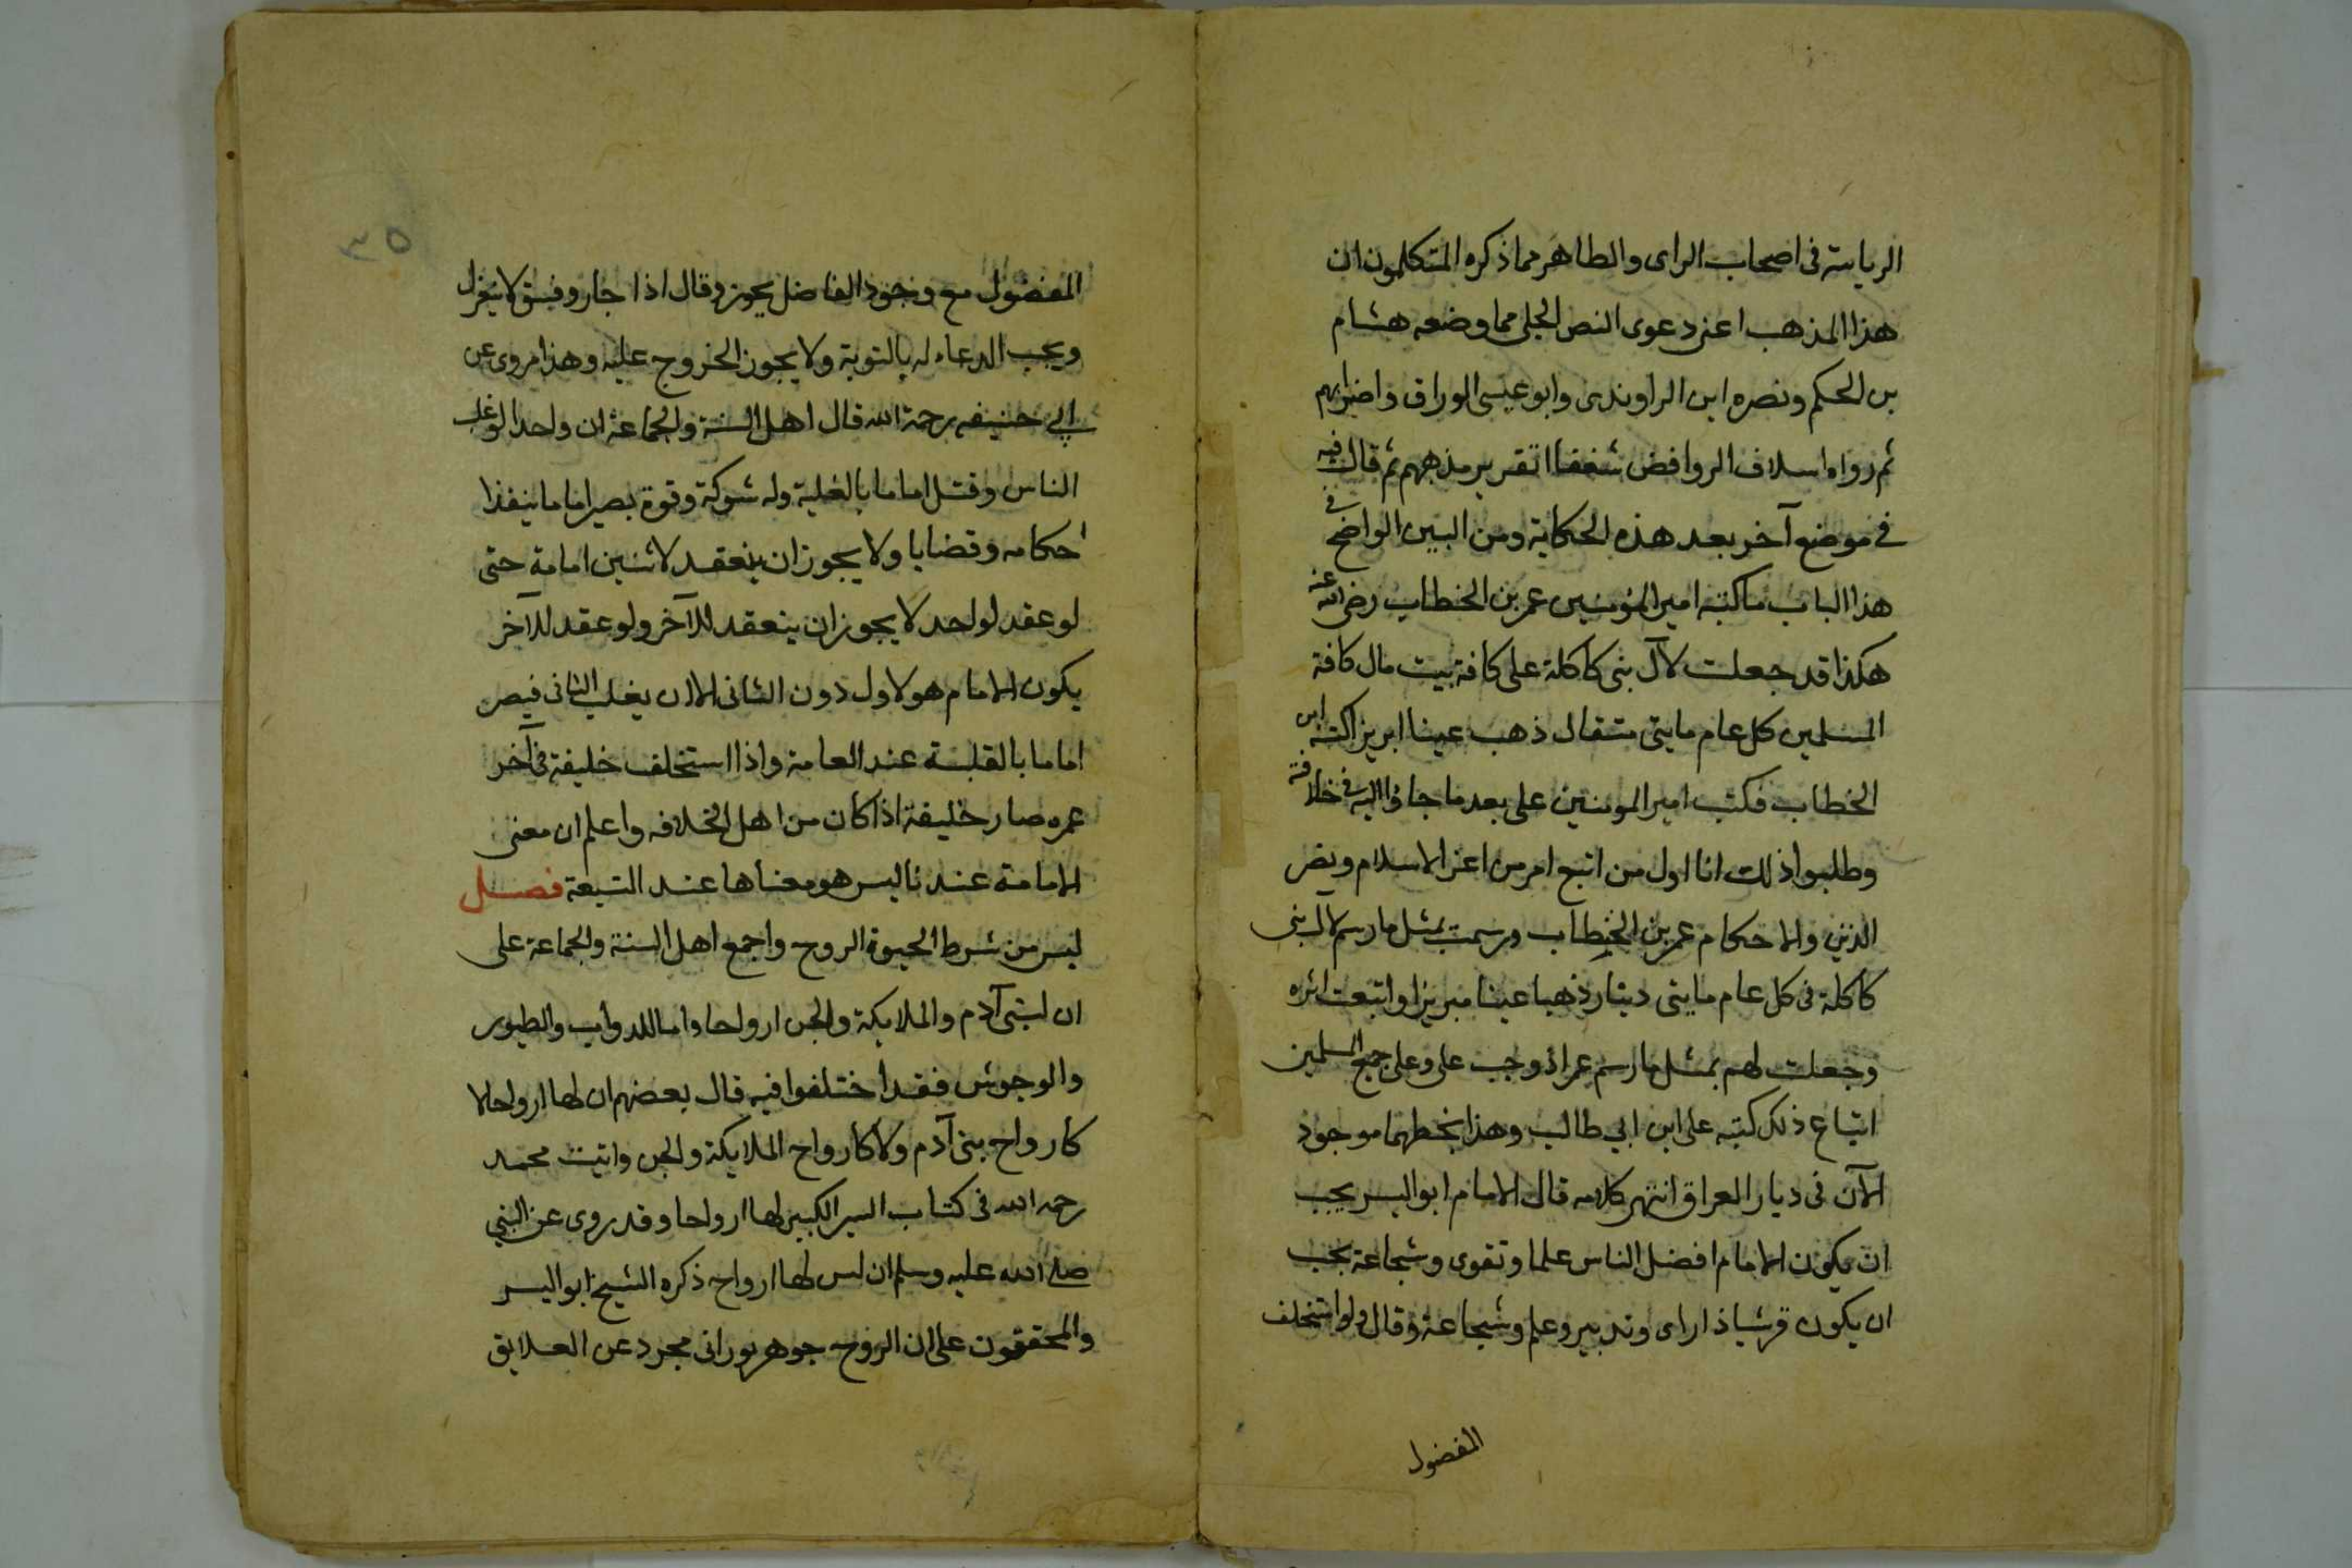 الرياسة فى اصحاب الراى والظاهر مما ذكره المتكلمون ان
هذا المذهب اعنى دعوى النص الجلى مما وضعه هشام
بن الحكم ونصره ابن الراوندى وابو عيسى الوراق واضرابهم
ثم رواه اسلاف الروافض شغفا اتقرير مذهبهم ثم قال فيه
فى موضع آخر بعد هذه الحكاية ومن البين الواضح فى
هذا الباب ما كتبه امير المؤمنين عمر بن الخطاب رضى الله عنه
هكذا قد جعلت لآل بنى كاكلة على كافة بيت مال كافة
المسلمين كل عام مايتى مثقال ذهب عينا ابريزا كتبه ابن
الخطاب فكتب امير المومنين على بعد ما جاؤا اليه فى خلافته
وطلبوا ذلك انا اول من اتبع امر من اعز الاسلام ونصر
الدين والاحكام عمر بن الخطاب ورسمت بمثل ما رسم لآل بنى
كاكلة فى كل عام مايتى دينار ذهبا عينا مبريزا واتبعت اثره
وجعلت لهم بمثل ما رسم عمر اذ وجب على وعلى جميع المسلمين
اتباع ذلك كتبه على ابن ابي طالب وهذا بخطهما موجود
الآن فى ديار العراق انتهى كلامه قال الامام ابو اليسر يجب
ان يكون الامام افضل الناس علما وتقوى وشجاعة يجب
ان يكون قرشيا ذا راى وتدبير وعلم وشجاعة وقال ولو استخلف
المفضول
٣٥
المفضول مع وجود الفاضل يجوز وقال اذا جار وفسق لا ينعزل
ويجب الدعاء له بالتوبة ولا يجوز الخروج عليه وهذا مروى عن
ابي حنيفه رحمة الله قال اهل السنة والجماعة ان واحدا لو غلب
الناس وقتل اماما بالغلبة وله شوكة وقوة يصير اماما ينفذ ا
احكامه وقضايا ولا يجوز ان ينعقد لاثنين امامة حتى
لو عقد لواحد لا يجوز ان ينعقد للآخر ولو عقد للآخر
يكون الامام هو لاول دون الثانى الا ان يغلب الثانى فيصر
اماما بالقلبة عند العامة واذا استخلف خليفة فى آخر
عمره صار خليفة اذا كان من اهل الخلافه واعلم ان معنى
الامامة عندنا ليس هو معناها عند الشيعة فصل
ليس من شرط الحيوة الروح واجمع اهل السنة والجماعة على
ان لبنى آدم والملايكة والجن ارواحا واما للدواب والطيور
والوحوش فقد اختلفوا فيه قال بعضهم ان لها ارواحا لا
كارواح بنى آدم ولا كارواح الملايكة والجن واثبت محمد
رحمه الله فى كتاب السير الكبير لها ارواحا وقد روى عن النبي
صلى الله عليه وسلم ان ليس لها ارواح ذكره الشيخ ابو اليسر
والمحققون على ان الروح جوهر نورانى مجرد عن العلايق